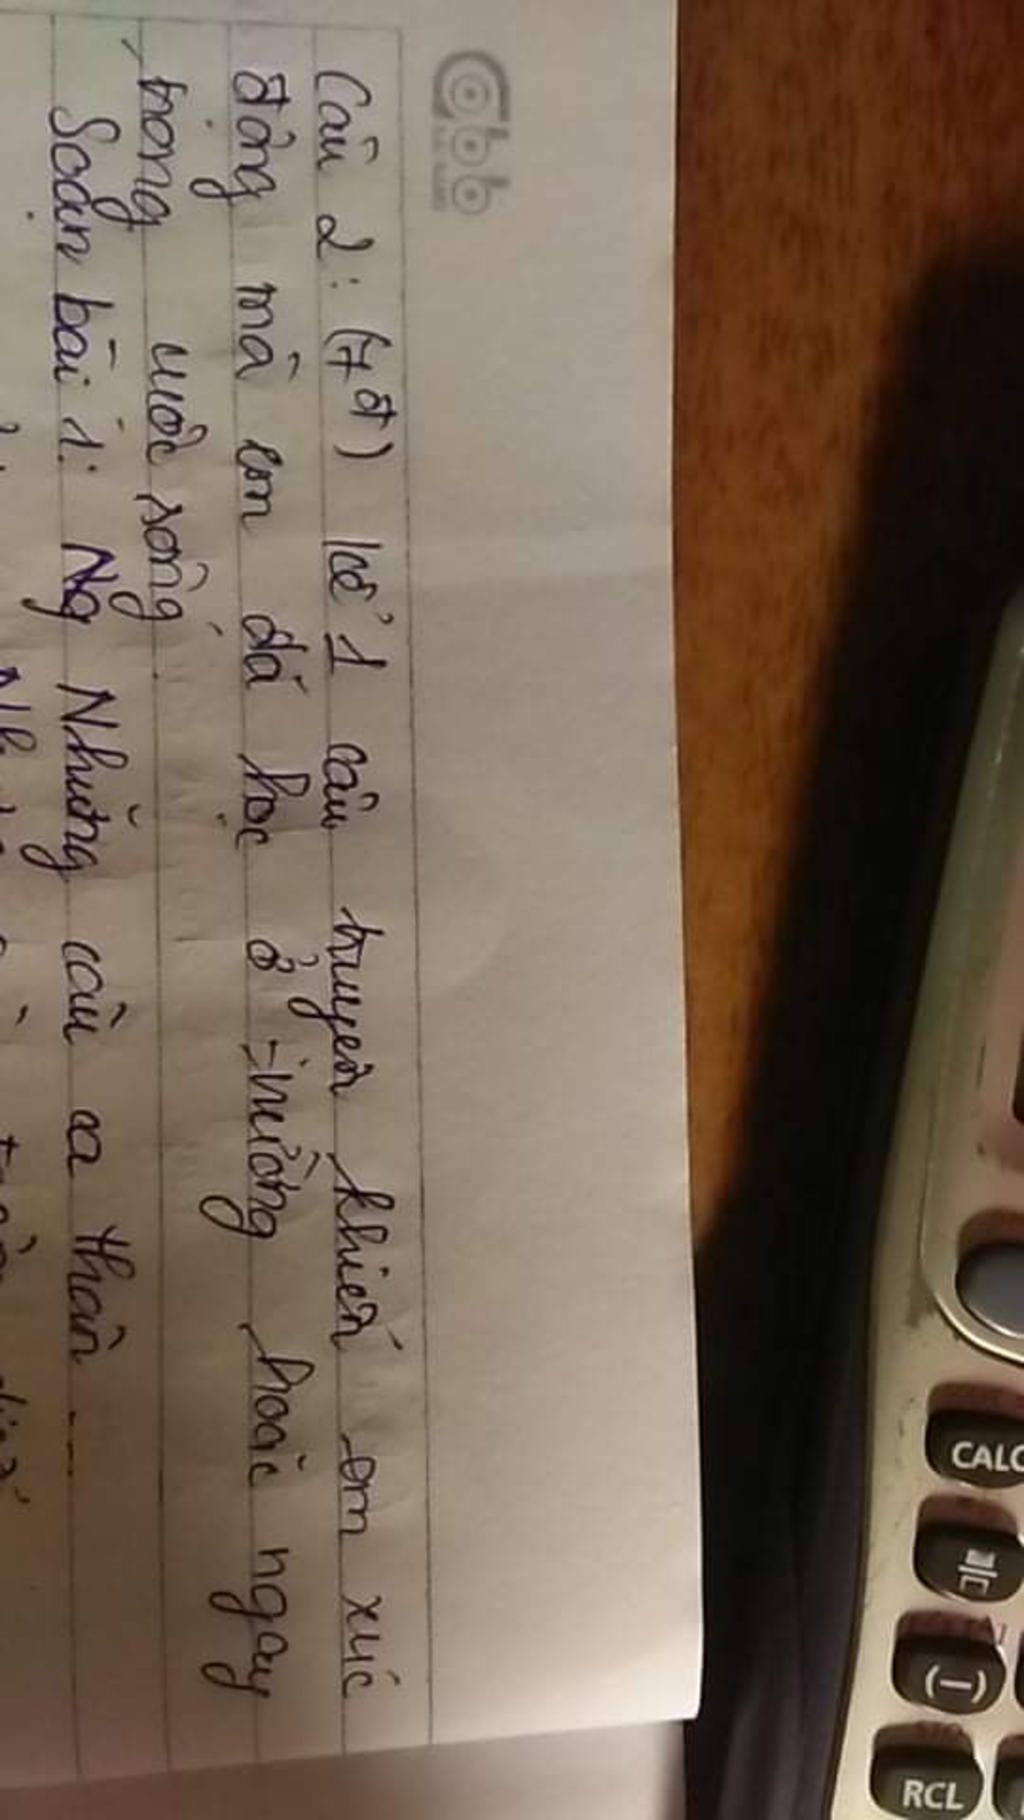 Câu 2: (7đ) kể 1 câu truyện khiến em xúc
động mà em đã học ở trường hoặc ngay
trong cuộc sống
Soạn bài 1: Ng Những câu ca thán ---
CALC
(—)
RCL